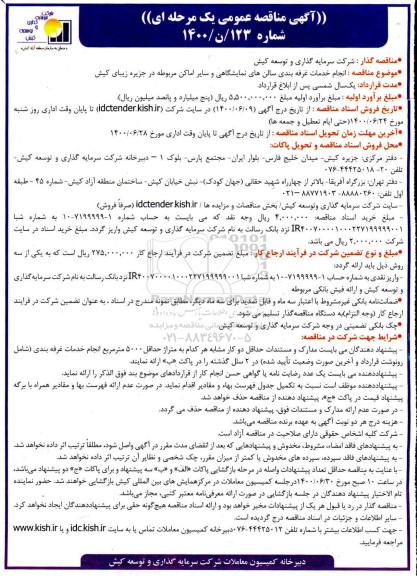 ((آگهی مناقصه عمومی یک مرحله ای))
شماره ۱۲۳/ن/۱۴۰۰
•مناقصه گذار : شرکت سرمایه گذاری و توسعه کیش
•موضوع مناقصه : انجام خدمات غرفه بندی سالن های نمایشگاهی و سایر اماکن مربوطه در جزیره زیبای کیش
•مدت قرارداد: یک‌سال شمسی پس از ابلاغ قرارداد
•مبلغ برآورد اولیه : مبلغ برآورد اولیه مبلغ ۵,۵۰۰,۰۰۰,۰۰۰ ریال (پنج میلیارد و پانصد میلیون ریال).
•تاریخ فروش اسناد مناقصه : از تاریخ درج آگهی (۱۴۰۰/۰۶/۰۹) در سایت شرکت (idctender.kish.ir) تا پایان وقت اداری روز شنبه
مورخ ۱۴۰۰/۰۶/۲۴(حتی ایام تعطیل و جمعه ها)
•آخرین مهلت زمان تحویل اسناد مناقصه : از تاریخ درج آگهی تا پایان وقت اداری مورخ ۱۴۰۰/۰۶/۲۸
•محل فروش اسناد مناقصه و تحویل پاکات:
- دفتر مرکزی: جزیره کیش- میدان خلیج فارس- بلوار ایران- مجتمع پارس- بلوک ۱ – دبیرخانه شرکت سرمایه گذاری و توسعه کیش-
تلفن ۲۰-۴۴۴۲۵۰۱۸-۰۷۶
- دفتر تهران: بزرگراه آفریقا- بالاتر از چهارراه شهید حقانی (جهان کودک)- نبش خیابان کیش- ساختمان منطقه آزاد کیش- شماره ۴۵ -طبقه
اول تلفن: ۸۸۸۸۰۲۶۰ - ۸۸۷۷۱۹۰۳-۰۲۱
- سایت شرکت سرمایه گذاری وتوسعه کیش/ بخش مناقصات و مزایده ها : idctender.kish.ir (صرفاً فروش)
- مبلغ خرید اسناد مناقصه: ۴,۰۰۰,۰۰۰ ریال وجه نقد که می بایست به حساب شماره ۱-۷۱۹۹۹۹۹-۱۰ به شماره شبا
نزد بانک رسالت به نام شرکت سرمایه گذاری و توسعه کیش واریز گردد. مبلغ خرید اسناد در سایت
شرکت ۲,۰۰۰,۰۰۰ ریال می باشد.
•مبلغ و نوع تضمین شرکت در فرآیند ارجاع کار : مبلغ تضمین شرکت در فرآیند ارجاع کار ۲۷۵,۰۰۰,۰۰۰ ریال است که به یکی از سه
روش ذیل باید ارائه گردد:
- واریز نقدی به شماره حساب ۱-۷۱۹۹۹۹۹-۱۰ به شماره شبا نزد بانک رسالت به نام شرکت سرمایه گذاری
و توسعه کیش و ارائه فیش بانکی مربوطه
•ضمانت‌نامه بانکی غیرمشروط با اعتبار سه ماه و قابل تمدید برای سه ماه دیگر، مطابق نمونه مندرج در اسناد ، به عنوان تضمین شرکت در فرآیند
ارجاع کار (وجه التزام)به دستگاه مناقصه‌گذار تسلیم می شود.
•چک بانکی تضمینی در وجه شرکت سرمایه گذاری و توسعه کیش
•شرایط جهت شرکت در مناقصه:
- پیشنهاد دهندگان می بایست مدارک و مستندات حداقل دو کار مشابه هر کدام به متراژ حداقل۵۰۰۰ مترمربع انجام خدمات غرفه بندی (شامل
رونوشت قرارداد و آخرین صورت وضعیت تأیید شده) در ۲ سال گذشته را در پاکت «ب» ارائه نمایند.
- پیشنهاددهنده می بایست یک عدد رضایت نامه یا گواهی حسن انجام کار از قراردادهای موضوع بند فوق الذکر را ارائه نمایند.
- پیشنهاددهنده موظف است نسبت به تکمیل جدول فهرست بها، و مقادیر اقدام نماید. در صورت عدم ارائه فهرست بها و مقادیر همراه با برگه
پیشنهاد قیمت در پاکت «ج»، پیشنهاد دهنده از مناقصه حذف خواهد شد.
- در صورت عدم ارائه مدارک و مستندات فوق، پیشنهاد دهنده از مناقصه حذف می گردد.
- هزینه درج هر دو نوبت آگهی به عهده برنده مناقصه می‌باشد.
- شرکت کلیه اشخاص حقوقی دارای صلاحیت در مناقصه آزاد است.
- به پیشنهادهای فاقد امضاء، مشروط، مخدوش و پیشنهادهایی که بعد از انقضای مدت مقرر در آگهی واصل شود، مطلقاً ترتیب اثر داده نخواهد شد.
- به پیشنهادهای فاقد سپرده، سپرده های مخدوش یا کمتر از میزان مقرر، چک شخصی و نظایر آن ترتیب اثر داده نخواهد شد.
- با عنایت به مناقصه حداقل تعداد پیشنهادات واصله در مرحله بازگشایی پاکات «الف» و «ب» سه پیشنهاد و برای پاکات «ج» دو پیشنهاد می‌باشد،
در ساعت ۱۰ صبح مورخ ۱۴۰۰/۰۶/۳۰ درجلسه کمیسیون معاملات در مرکزهمایش های بین المللی کیش بازگشایی خواهند شد. حضور نماینده
تام الاختیار پیشنهاد دهندگان در جلسه بازگشایی در صورت ارائه معرفی‌نامه معتبر کتبی، مجاز می‌باشد.
- مناقصه گذار در رد یا قبول هر یک از پیشنهادات مخیر خواهد بود و ارائه اسناد مناقصه هیچ‌گونه حقی برای پیشنهاددهندگان ایجاد نخواهد کرد.
- سایر اطلاعات و جزئیات در اسناد مناقصه درج گردیده است.
- جهت کسب اطلاعات بیشتر با شماره تلفن ۴۴۴۲۵۰۱۲-۰۷۶ دبیرخانه کمیسیون معاملات تماس یا به سایت idc.kish.ir و یا www.kish.ir
مراجعه فرمایید.
دبیرخانه کمیسیون معاملات شرکت سرمایه گذاری و توسعه کیش